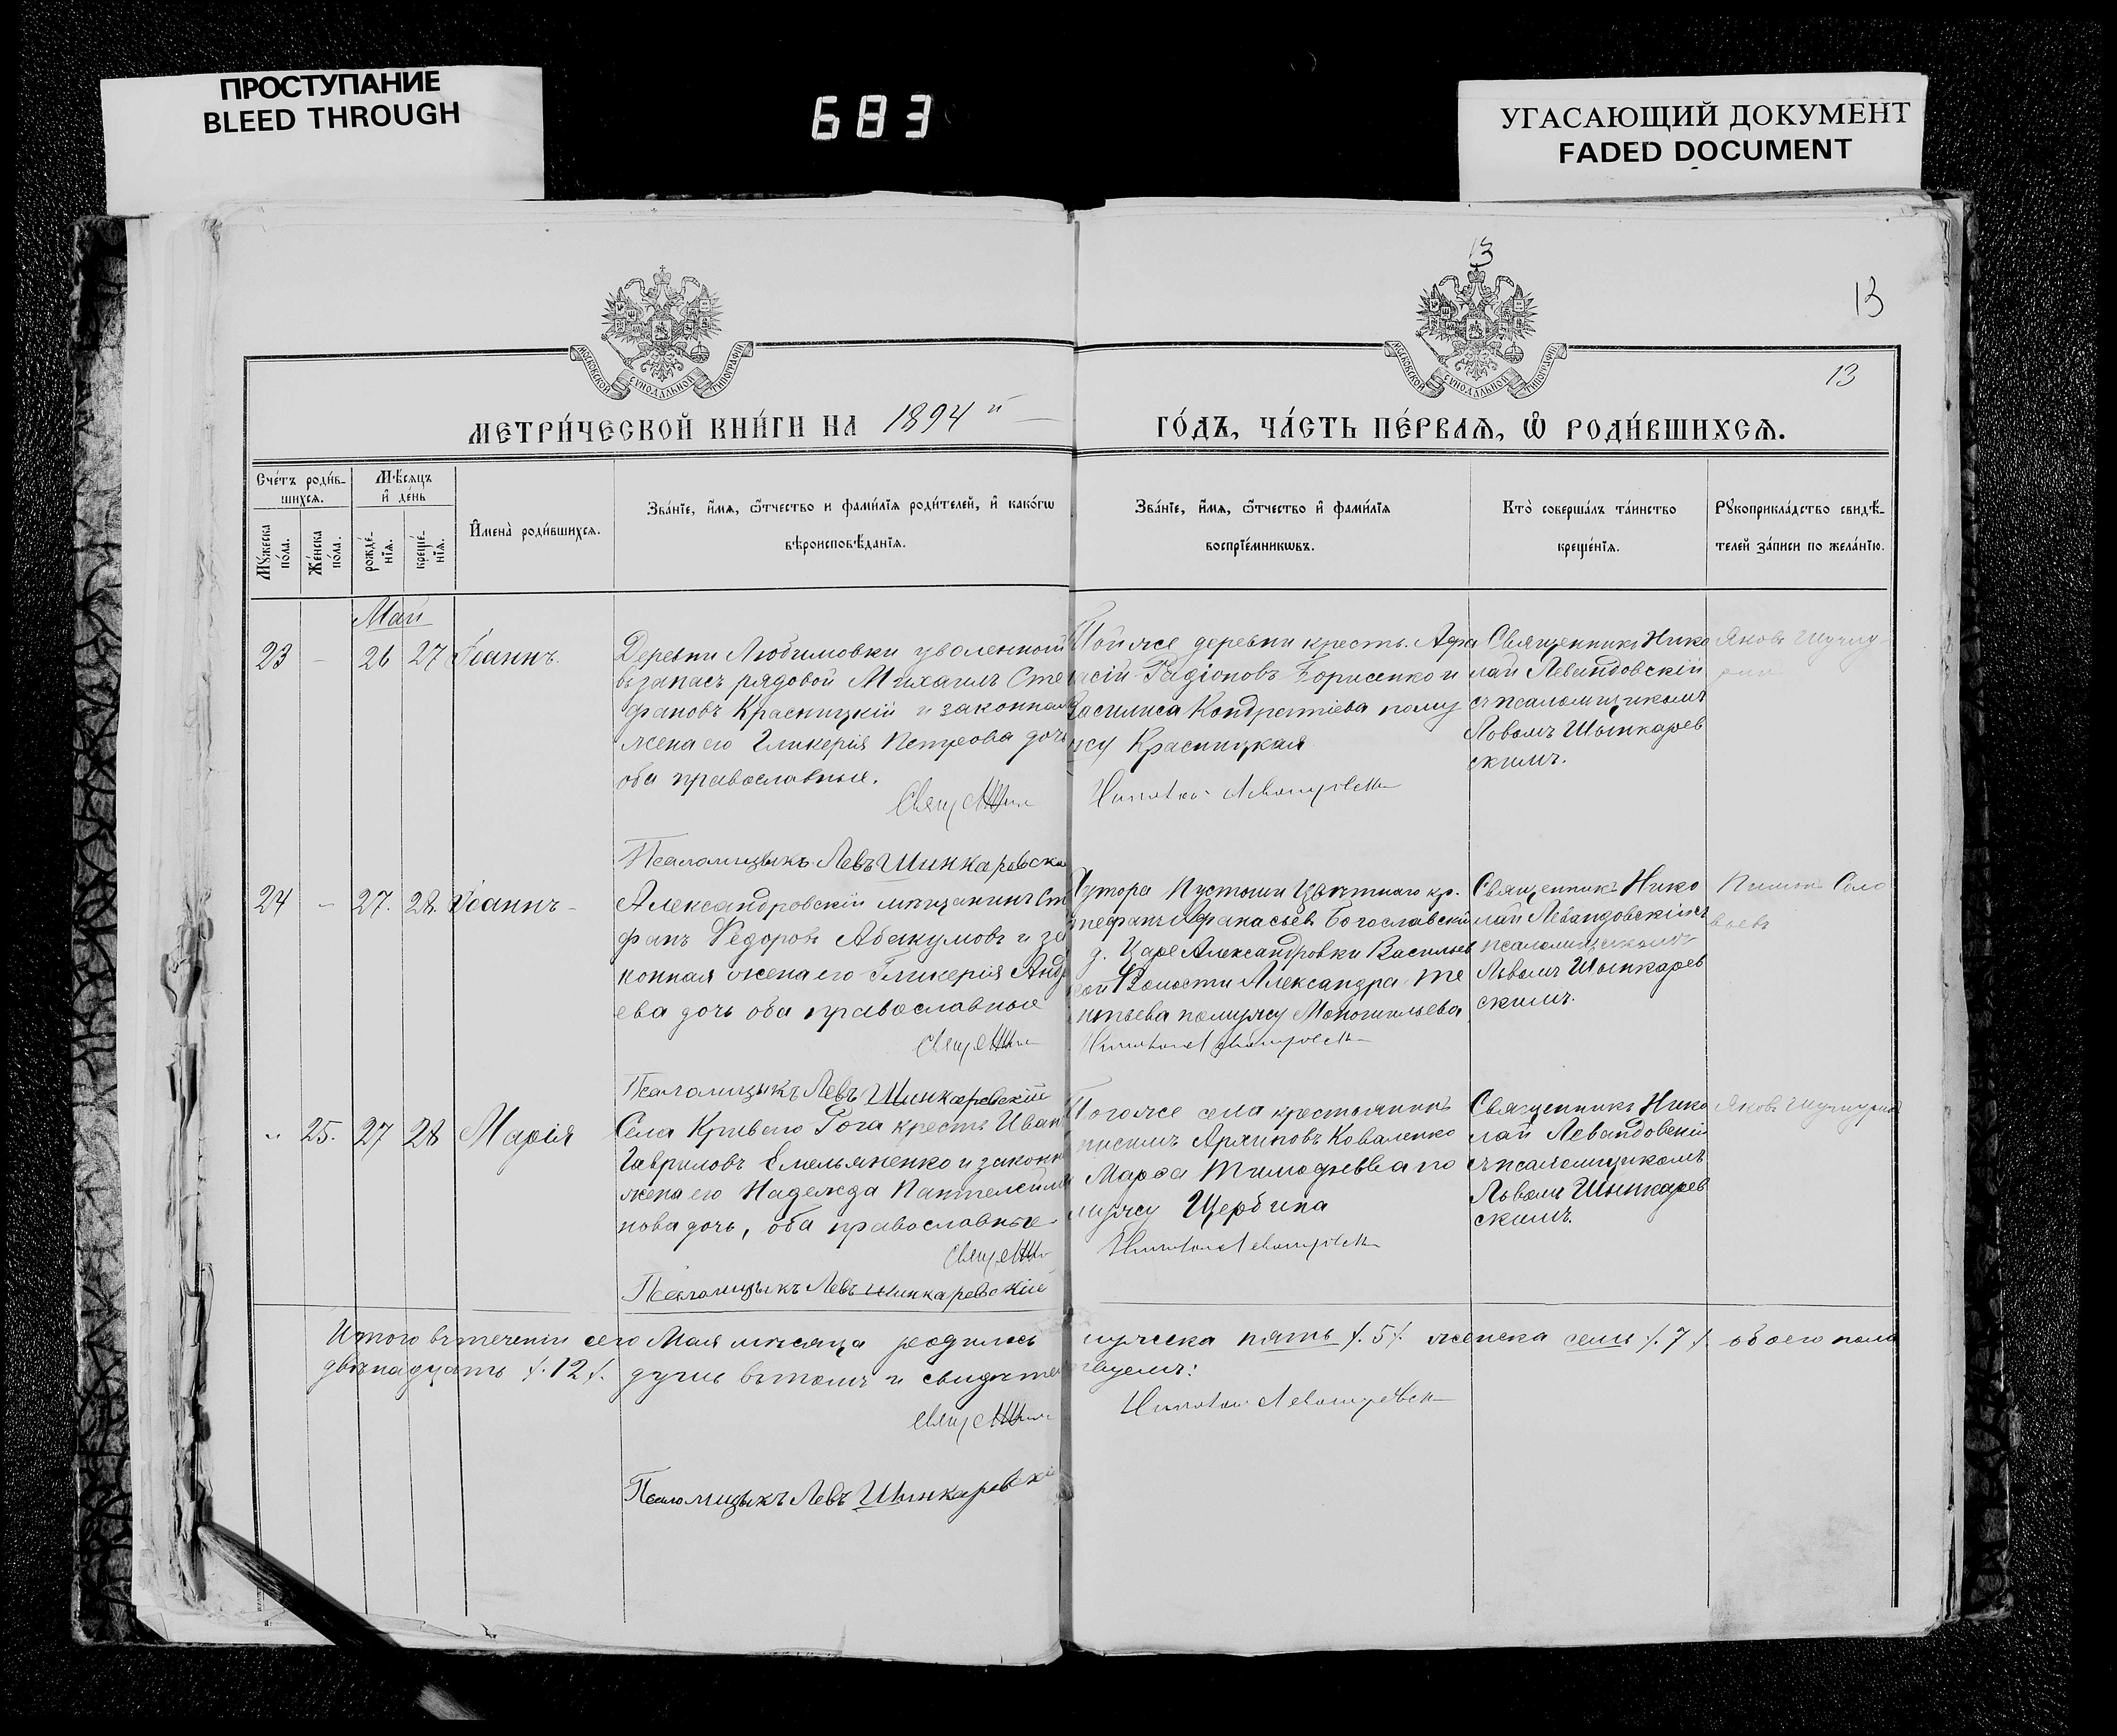 ПРОСТУПАНИЕ
BLEED THROUGH
683
УГАСАЮЩИЙ ДОКУМЕНТ
FADED DOCUMENT
13
13
13
МОСКОВСКОЙ СУНОДАЛЬНОЙ ТИПОГРАФІИ
МОСКОВСКОЙ СУНОДАЛЬНОЙ ТИПОГРАФІИ
МЕТРИ́ЧЕСКОЙ КНИ́ГИ НА 1894 й
ГО́ДЪ, ЧА́СТЬ ПЕ́РВАЯ, Ѡ РОДИ́ВШИХСЯ.
Сче́тъ роди́в-
шихся.
Му́жеска
по́ла.
Же́нска
по́ла.
Мѣ́сяцъ
и де́нь
рожде́-
нія.
креще́-
нія.
Имена̀ роди́вшихся.
Зва́ніе, и́мя, ѿтчество и фами́лія роди́телей, и како́гѡ
вѣроисповѣ́данія.
Зва́ніе, и́мя, ѿтчество и фами́лія
воспріе́мникѡвъ.
Кто̀ соверша́лъ та́инство
креще́нія.
Рꙋкоприкла́дство свидѣ́-
телей за́писи по жела́нію.
Май
23 – 26 27 Іоаннъ.
Деревни Любимовки уволенный
въ запасъ рядовой Михаилъ Сте
фановъ Красницкій и законная
жена его Гликерія Петрова дочь
оба православные.
Свящ
Той же деревни кресть. Афа
насій Радіоновъ Борисенко и
Василиса Кондратіева по му
жу Красницкая
Священникъ Нико
лай Левандовскій
съ псаломщикомъ
Львомъ Шынкарев
скимъ.
Яковъ
Псаломщыкъ Левъ Шинкаревск
24 – 27. 28. Іоаннъ –
Александровскій мѣщанинъ Сте
фанъ Ѳедоровъ Абакумовъ и за
конная жена его Гликерія Андр
ева дочь оба православные
Свящ
Хутора Пустоши Цвѣтнаго кр.
Стефанъ Афанасьевъ Богославскій
д. Царе Александровки Васильев
кой Волости Александра Те
рентьева по мужу
Священникъ Нико
лай Левандовскій съ
псаломщикомъ
Львомъ Шынкарев
скимъ.
Соло
вьевъ
Псаломщыкъ Левъ Шинкаревскій
" 25. 27 28 Марія
Села Криваго Рога кресть Иван
Гавриловъ Емельяненко и законн
жена его Надежда Пантелеймо
нова дочь, оба православные
Свящ
Того же села крестьянинъ
Коваленко
Марѳа Тимофеевна по
мужу Щербина
Священникъ Нико
лай Левандовскій
съ псаломщикомъ
Львомъ Шынкарев
скимъ.
Яковъ
Псаломщыкъ Левъ Шинкаревскій
Итого въ теченіи сего Мая мѣсяца родилось мужеска пять /.5/. женска семь /.7/. обоего пола
двѣнадцать /.12/. душъ въ томъ и свидѣтельствуемъ:
Свящ
Псаломщыкъ Левъ Шынкаревскі